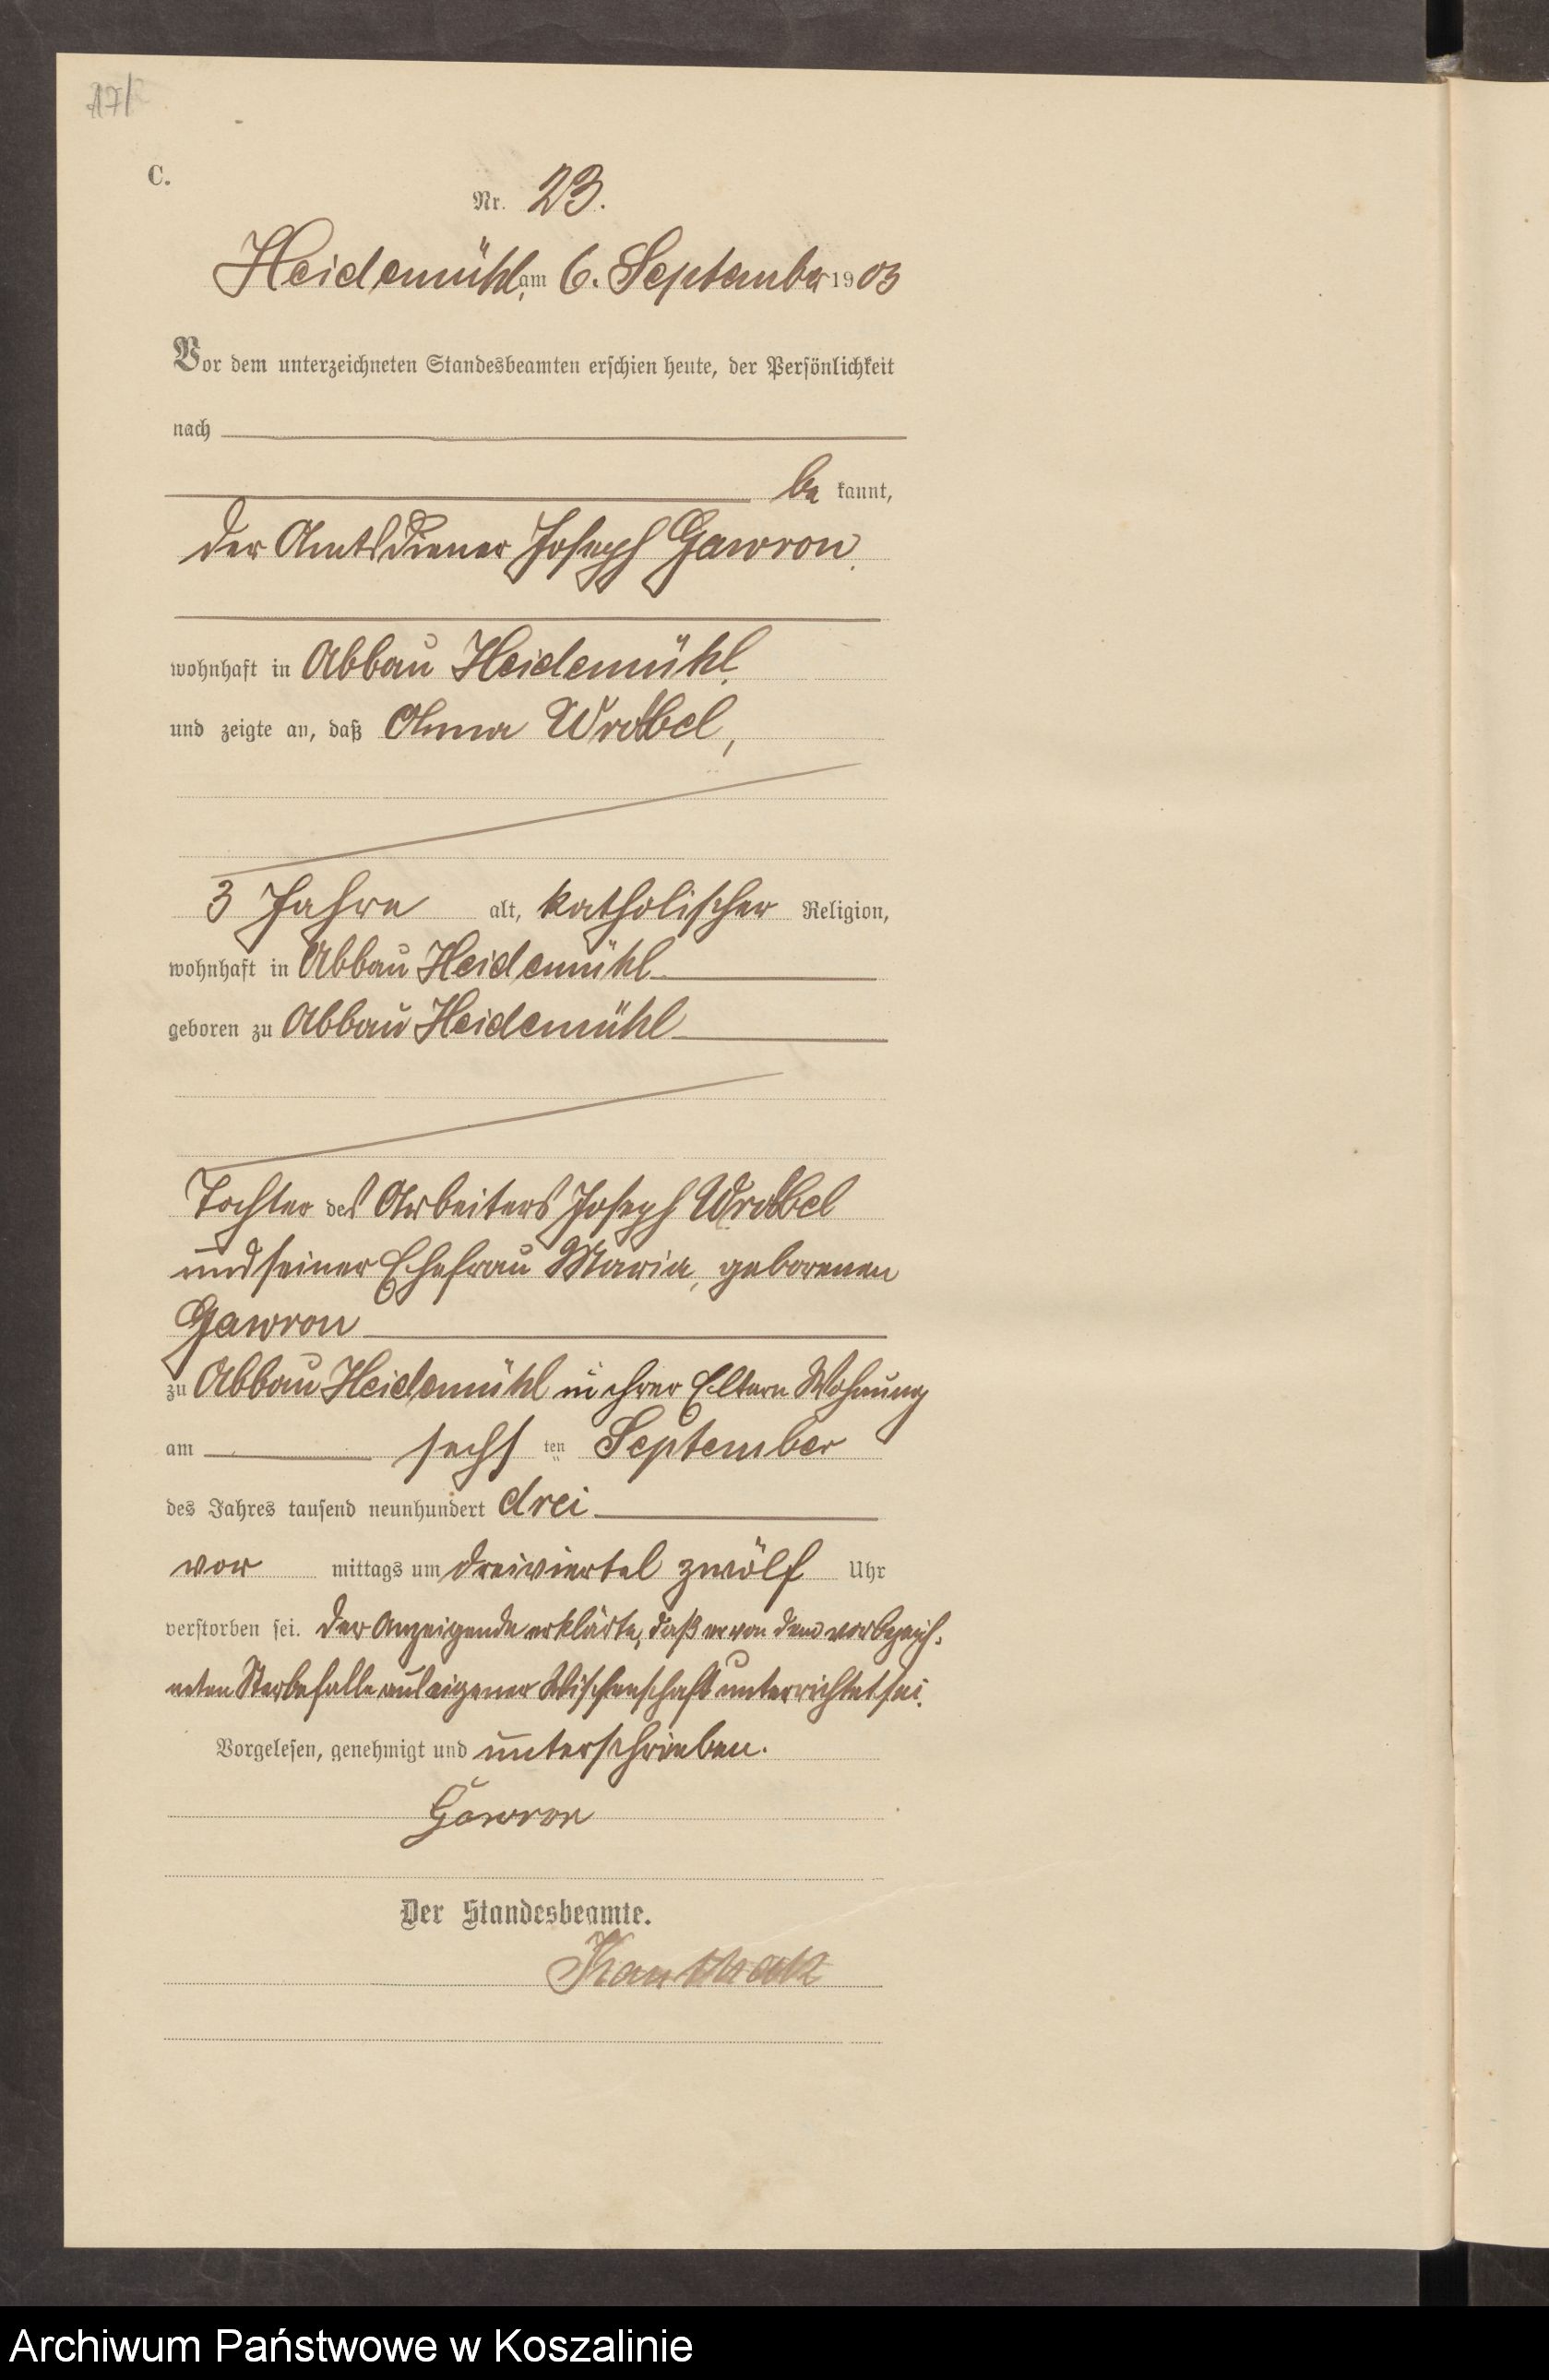 C.
Nr. 23.
Heidemühl, am 6. September 1903
Vor dem unterzeichneten Standesbeamten erschien heute, der Persönlichkeit
nach
be kannt,
der Amtsdiener Joseph Gawron,
wohnhaft in Abbau Heidemühl,
und zeigte an, daß Anna
3 Jahre alt, katholischer Religion,
wohnhaft in Abbau Heidemühl
geboren zu Abbau Heidemühl
Tochter des Arbeiters Joseph
und seiner Ehefrau Maria, geborenen
Gawron
zu Abbau Heidemühl in ihrer Eltern Wohnung
am sechs ten September
des Jahres tausend neunhundert drei
vor mittags um dreiviertel zwölf Uhr
verstorben sei. Der Anzeigende erklärte, daß er von dem vorbezeich-
neten Sterbefalle aus eigener Wissenschaft unterrichtet sei.
Vorgelesen, genehmigt und unterschrieben.
Gawron
Der Standesbeamte.
Archiwum Państwowe w Koszalinie